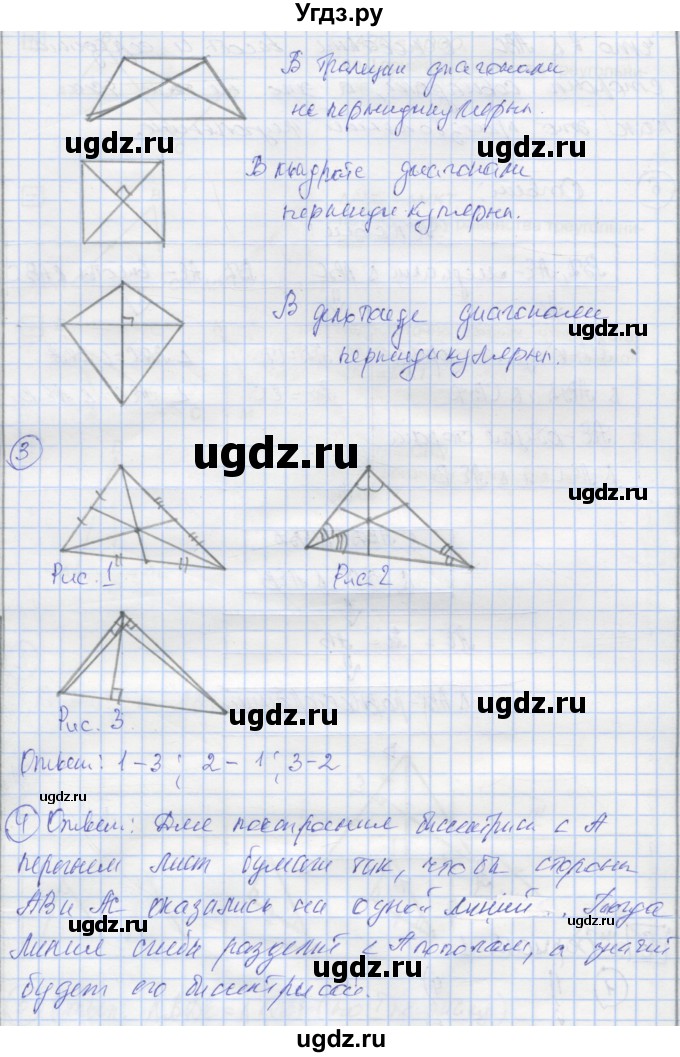 Угдз.ру
В трапеции диагонали
не перпендикулярны.
ugdz.ru
ugdz.ru
В квадрате диагонали
перпендикулярны.
ugdz.ru
В дельтоиде диагонали
ugdz.ru
перпендикулярны.
3
ugdz.ru
ugdz.ru
Рис. 1
Рис 2
ugdz.ru
ugdz.ru
Рис. 3.
Ответ: 1-3; 2-1; 3-2
ugdz.ru
4 Ответ: Для построения биссектрисы с А
перегнем лист бумаги так, чтобы стороны
АВ и АС оказались на одной линией. Тогда
ugdz.ru
линия сгиба разделит < А пополам, а значит
ugdz.ru
будет его биссектрисой.
ugdz.ru